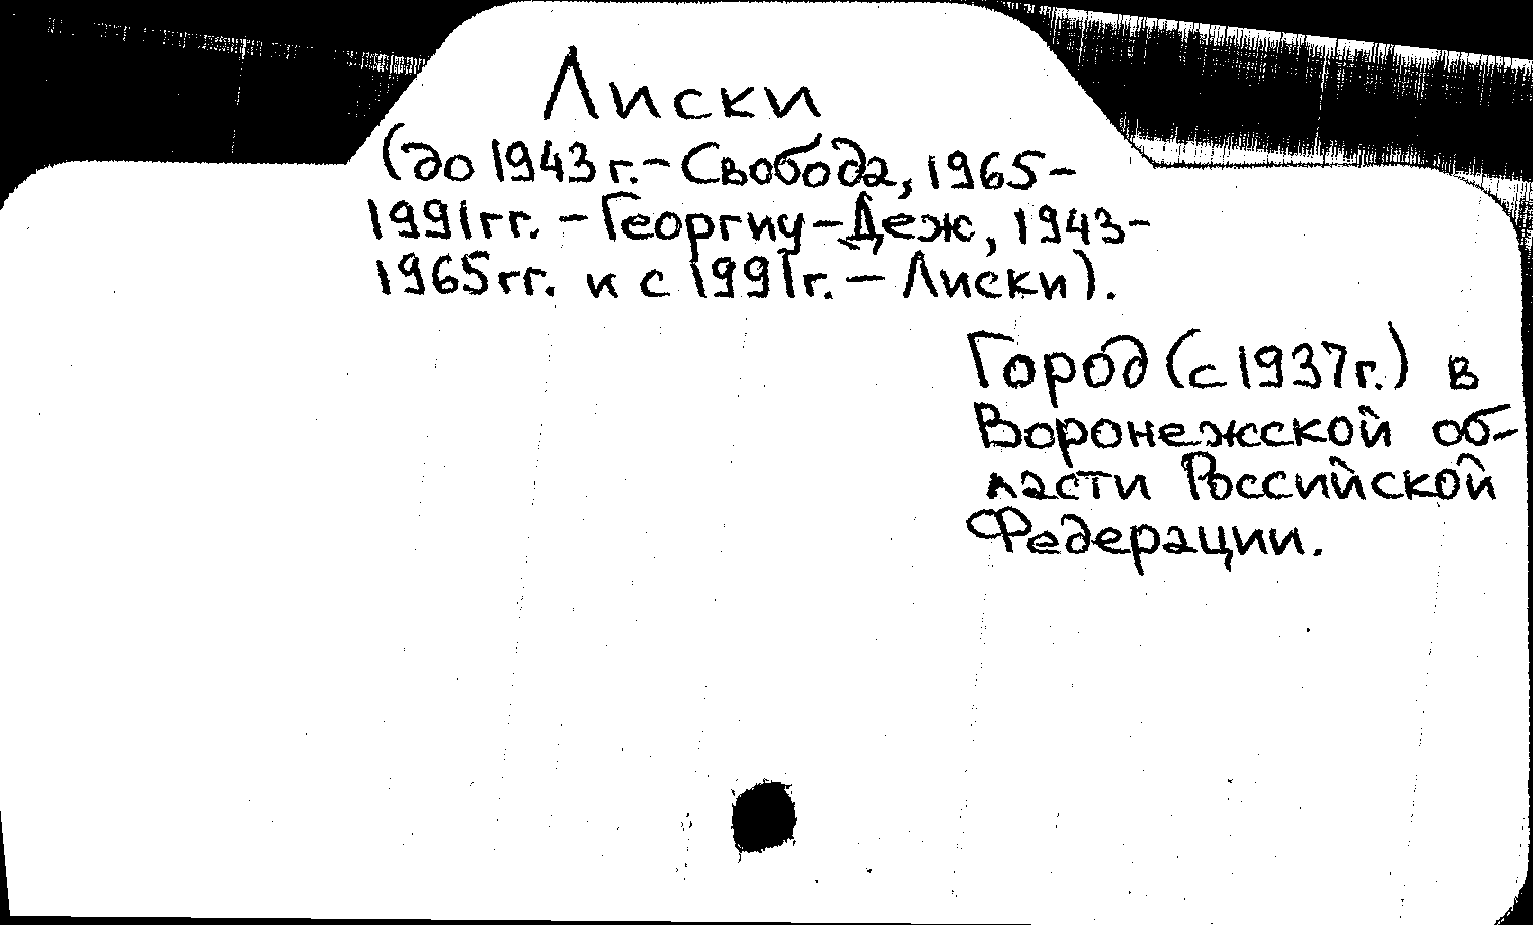 Лиски
(до 1943 г. - Свобода, 1965-
1991 гг. - Георгиу-Деж, 1943-
1965 гг. и с 1991 г. - Лиски).
Город (с 1937 г.) в
Воронежской об-
ласти Российской
Федерации.